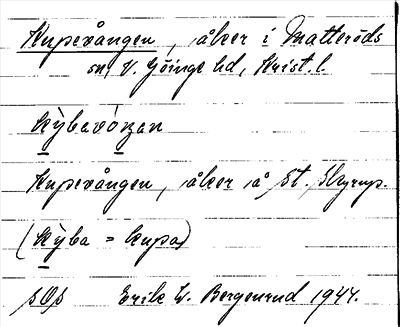 Kupevången, åker i Matteröds
sn, V. Göinge hd, Krist. l.
Kỳbavȯṇan
Kupevången, åker å St. Skyrup.
(Kỳba = kupa)
Erik W. Bergenrud 1944.